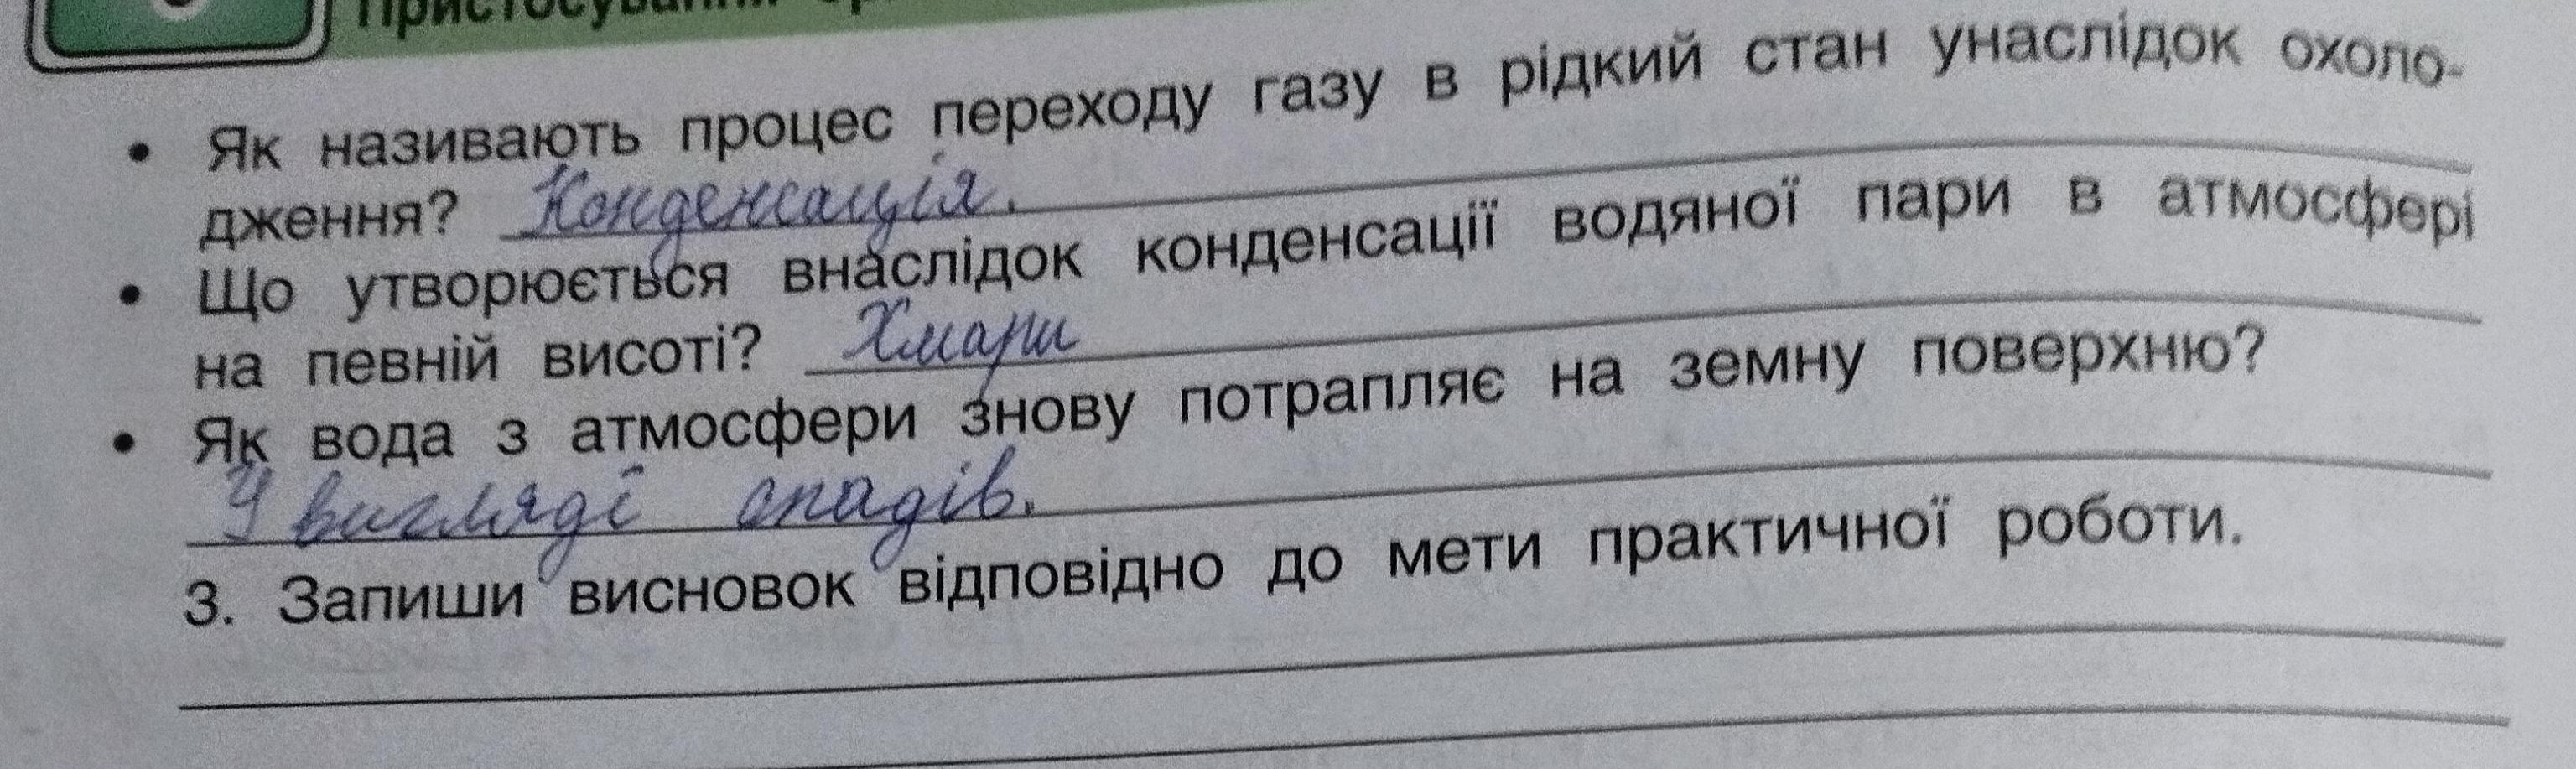 Пристосування
• Як називають процес переходу газу в рідкий стан унаслідок охоло-
дження? Конденсація.
• Що утворюється внаслідок конденсації водяної пари в атмосфері
на певній висоті? Хмари
• Як вода з атмосфери знову потрапляє на земну поверхню?
У вигляді опадів.
3. Запиши висновок відповідно до мети практичної роботи.